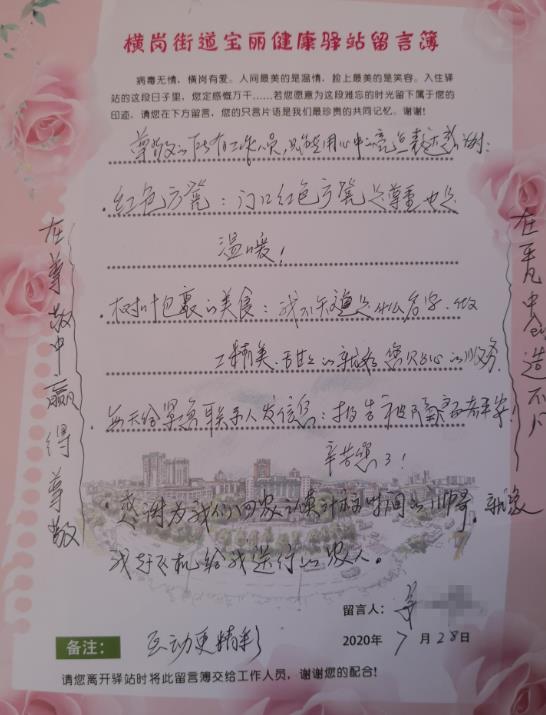 横岗街道宝丽健康驿站留言簿
病毒无情，横岗有爱。人间最美的是温情，脸上最美的是笑容。入住驿
站的这段日子里，您定感慨万千……若您愿意为这段难忘的时光留下属于您的
印迹，请您在下方留言，您的只言片语是我们最珍贵的共同记忆。谢谢！
尊敬的所有工作人员，只能用心中之意表达感谢：
·红色方凳：门口红色方凳是尊重也是
温暖！
·树叶包裹的美食：我不知道是什么名字，做
工精美、甜甜的就像您贴心的服务
·每天给紧急联系人发信息：报告被隔离者平安！
辛苦您了！
·感谢为我们回农计核时间的帅哥，
我赶飞机给我送行的家人。
在尊敬中赢得尊敬
在平凡中创造不凡
留言人：
2020年7月28日
备注：互动更精彩
请您离开驿站时将此留言簿交给工作人员，谢谢您的配合！